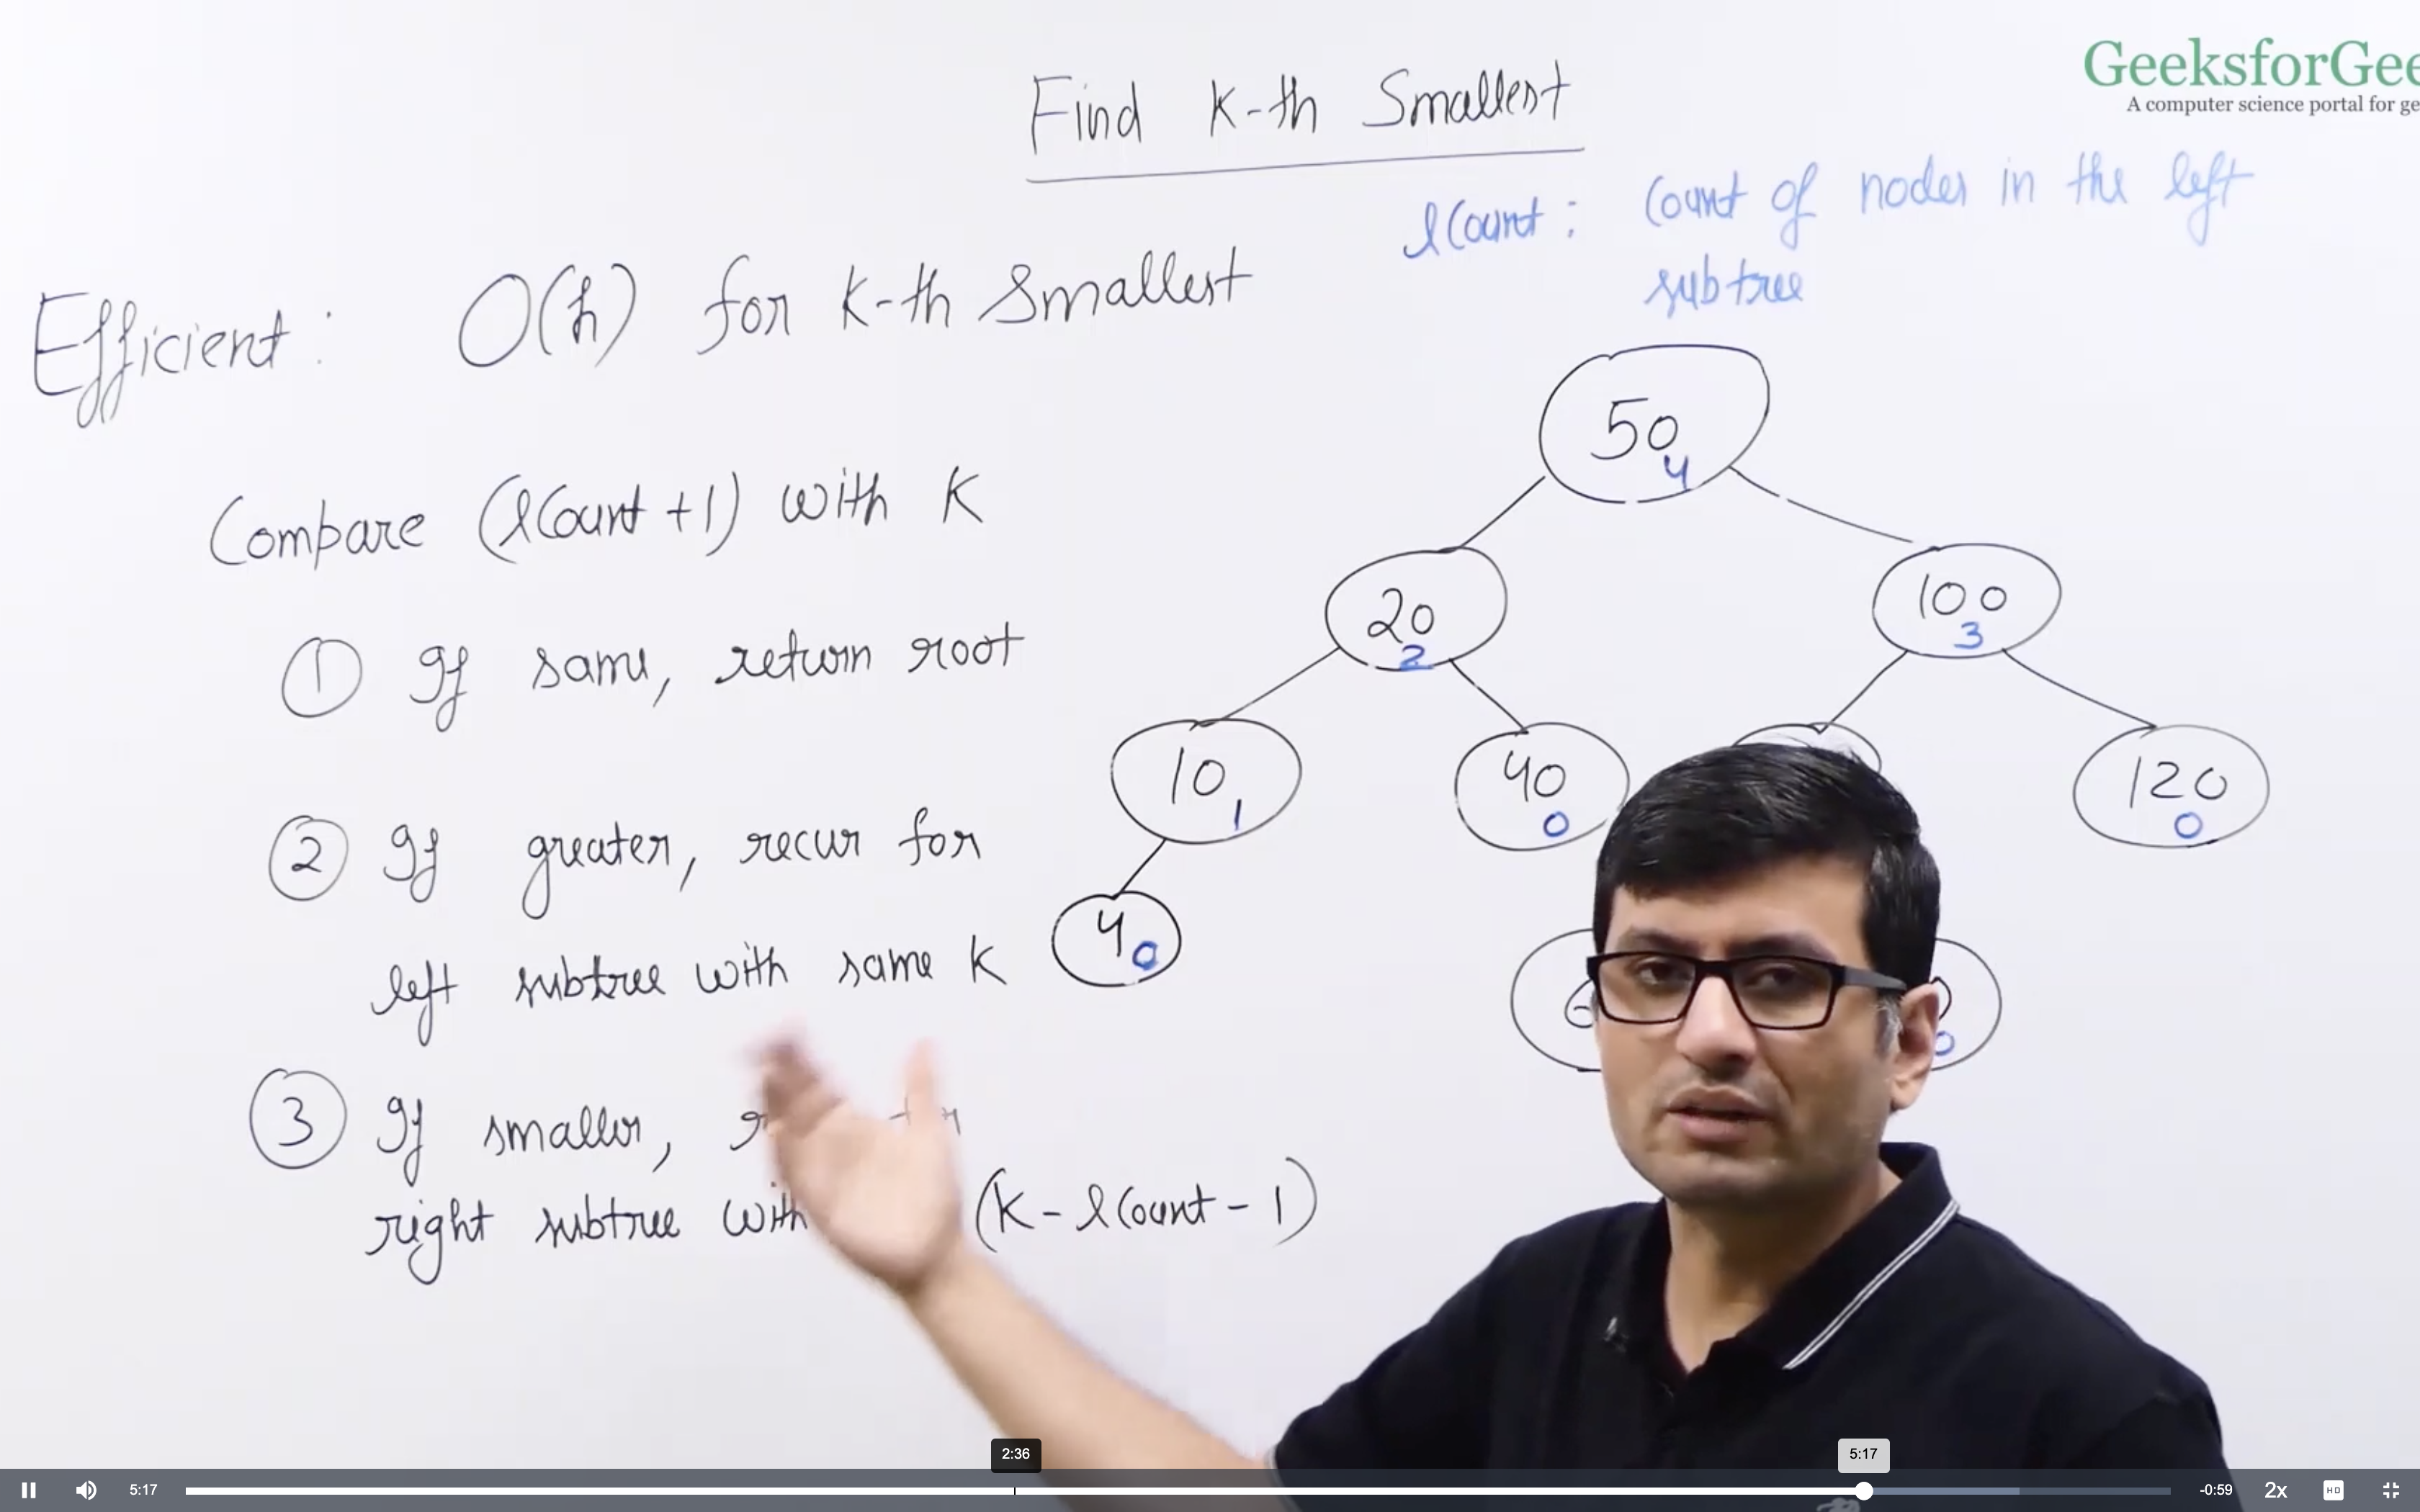 GeeksforGee
A computer science portal for ge
Find K-th Smallest
lCount : Count of nodes in the left
subtree
Efficient : O(h) for K-th Smallest
Compare (lCount + 1) with K
① If same, return root
② If greater, recur for
left subtree with same K
③ If smaller,
right subtree with (K - lCount - 1)
50
4
20
2
100
3
10
1
40
0
120
0
4
0
0
2:36
5:17
5:17
-0:59
2x
HD